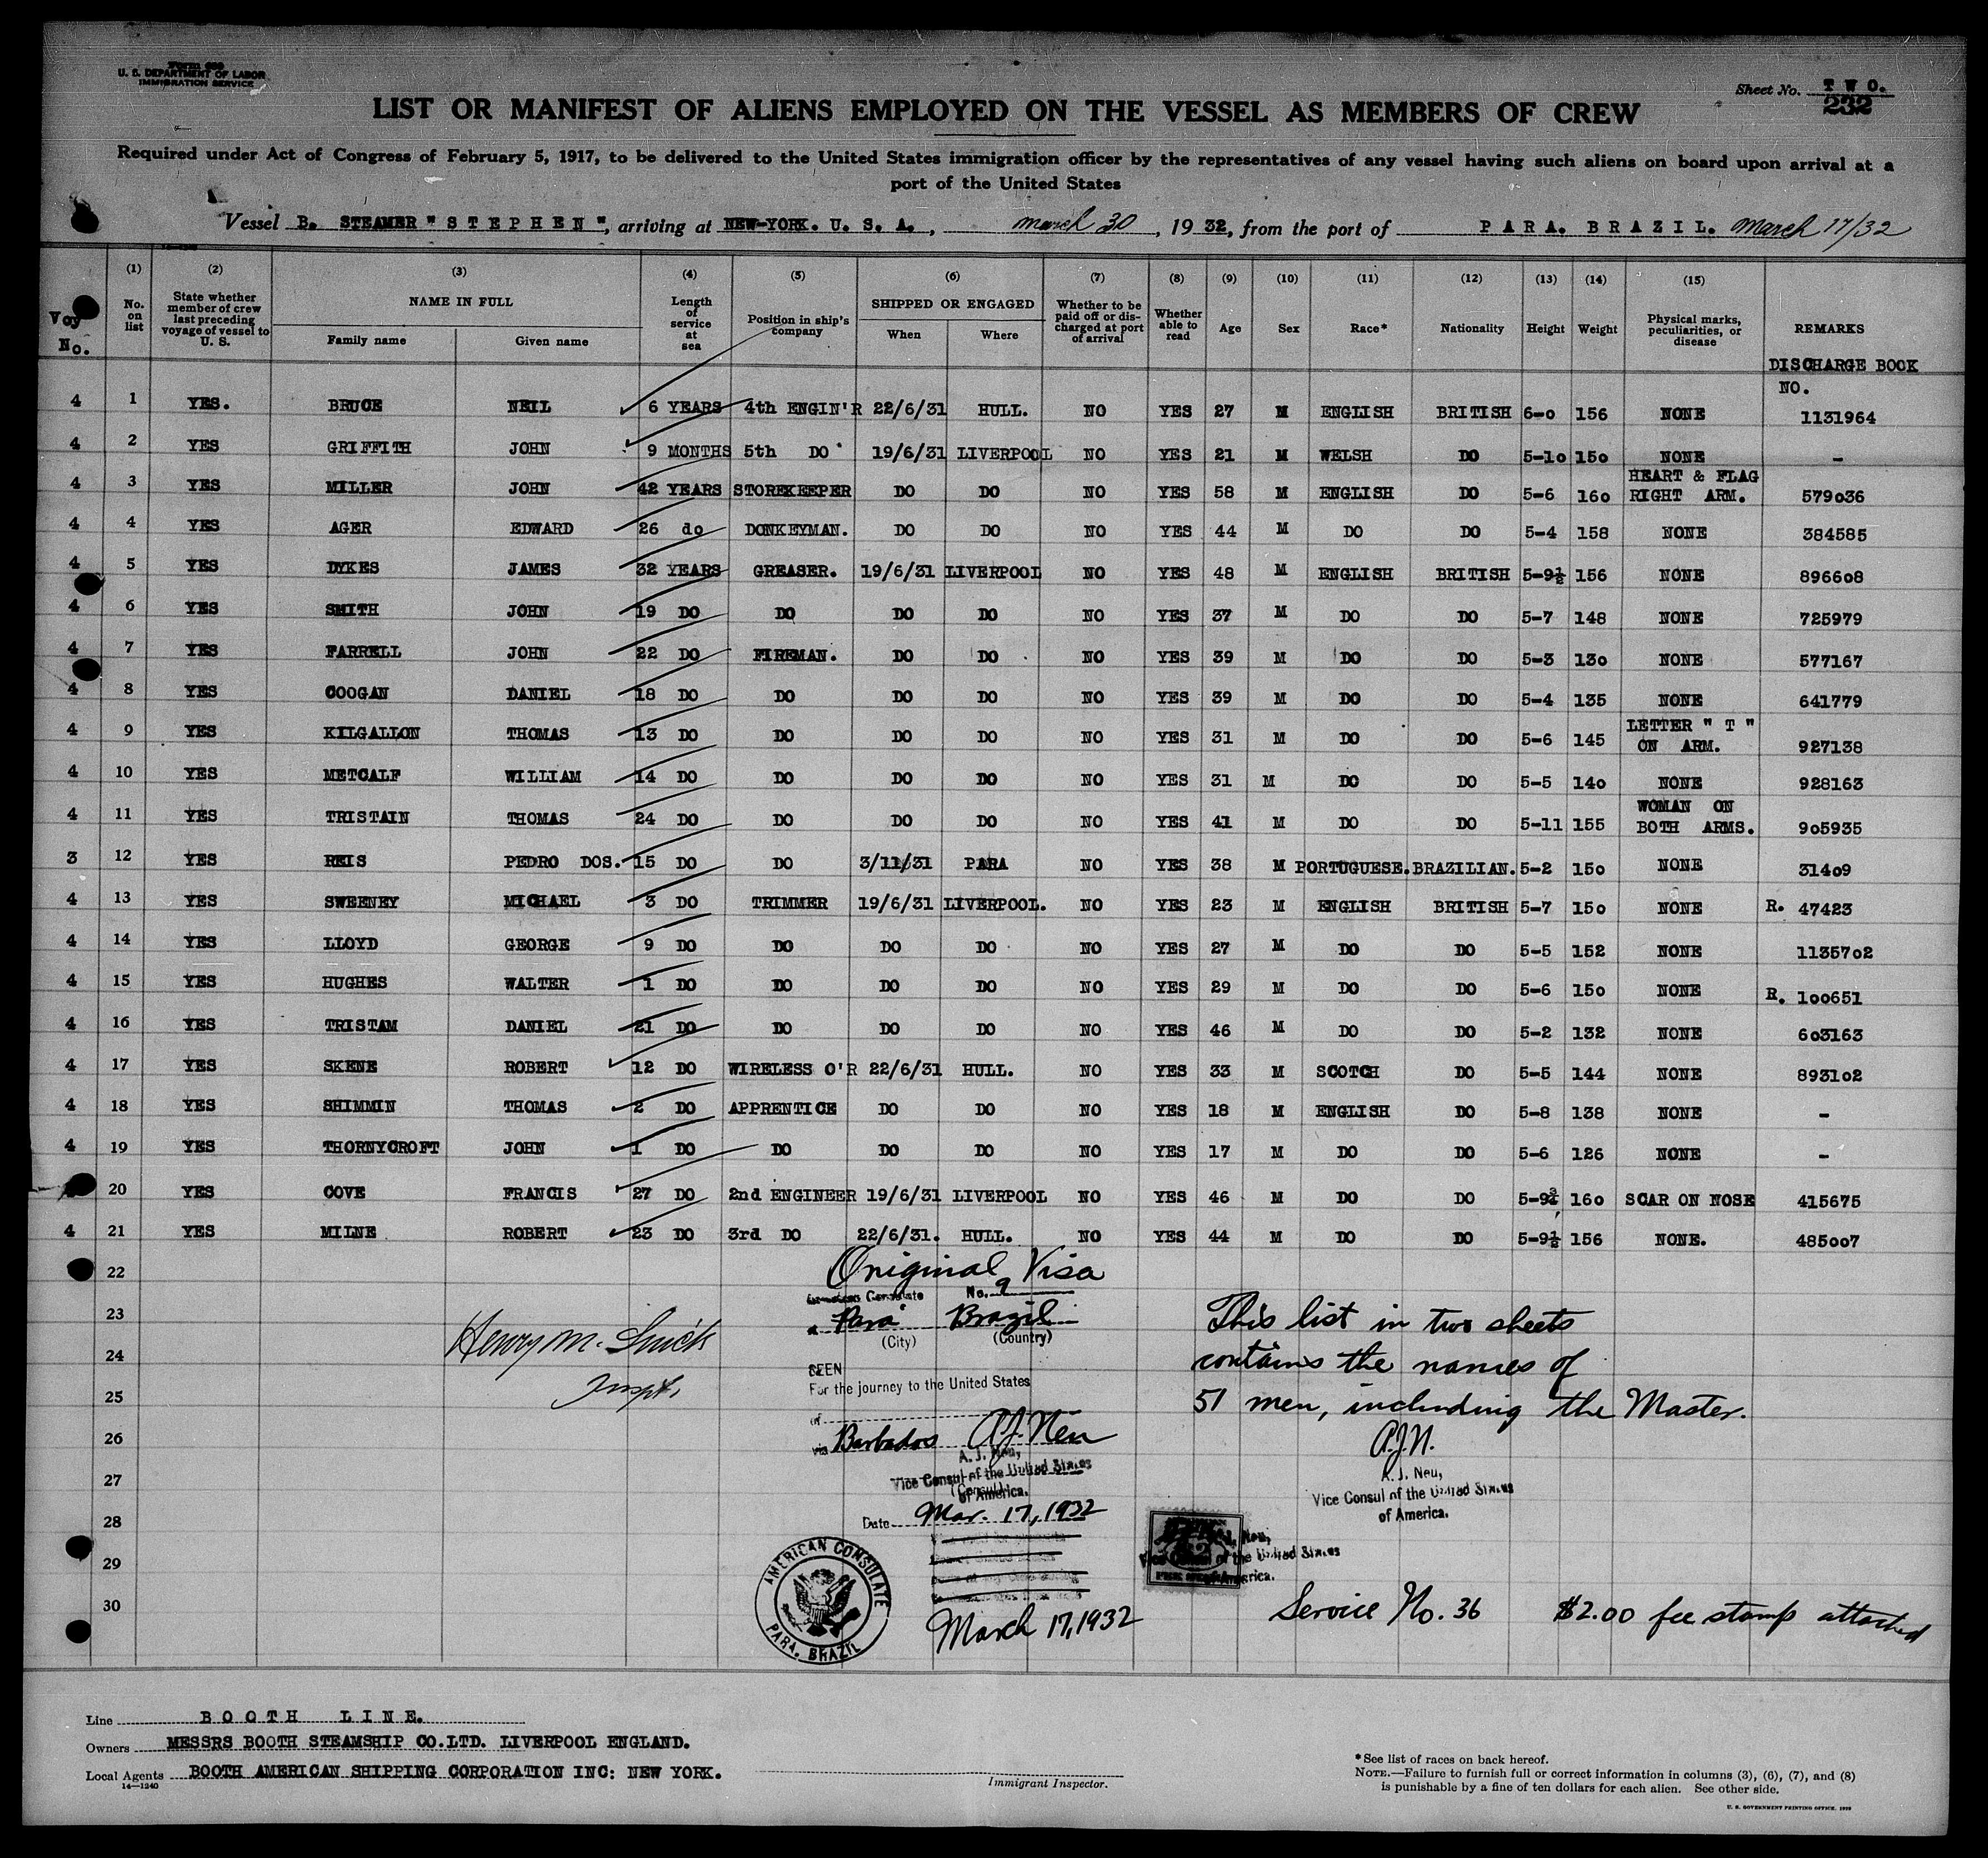 Form 689
U. S. DEPARTMENT OF LABOR
IMMIGRATION SERVICE
Sheet No. T W O.
232
LIST OR MANIFEST OF ALIENS EMPLOYED ON THE VESSEL AS MEMBERS OF CREW
Required under Act of Congress of February 5, 1917, to be delivered to the United States immigration officer by the representatives of any vessel having such aliens on board upon arrival at a
port of the United States
Vessel B. STEAMER " S T E P H E N ", arriving at NEW-YORK. U. S. A., March 30, 1932, from the port of P A R A. B R A Z I L. March 17/32
Voy No. (1) No. on list (2) State whether member of crew last preceding voyage of vessel to U. S. (3) NAME IN FULL Family name Given name (4) Length of service at sea (5) Position in ship's company (6) SHIPPED OR ENGAGED When Where (7) Whether to be paid off or discharged at port of arrival (8) Whether able to read (9) Age (10) Sex (11) Race* (12) Nationality (13) Height (14) Weight (15) Physical marks, peculiarities, or disease REMARKS
DISCHARGE BOOK NO.
4 1 YES. BRUCE NEIL 6 YEARS 4th ENGIN'R 22/6/31 HULL. NO YES 27 M ENGLISH BRITISH 6-0 156 NONE 1131964
4 2 YES GRIFFITH JOHN 9 MONTHS 5th DO 19/6/31 LIVERPOOL NO YES 21 M WELSH DO 5-10 150 NONE -
4 3 YES MILLER JOHN 42 YEARS STOREKEEPER DO DO NO YES 58 M ENGLISH DO 5-6 160 HEART & FLAG RIGHT ARM. 579036
4 4 YES AGER EDWARD 26 do DONKEYMAN. DO DO NO YES 44 M DO DO 5-4 158 NONE 384585
4 5 YES DYKES JAMES 32 YEARS GREASER. 19/6/31 LIVERPOOL NO YES 48 M ENGLISH BRITISH 5-9½ 156 NONE 896608
4 6 YES SMITH JOHN 19 DO DO DO DO NO YES 37 M DO DO 5-7 148 NONE 725979
4 7 YES FARRELL JOHN 22 DO FIREMAN. DO DO NO YES 39 M DO DO 5-3 130 NONE 577167
4 8 YES COOGAN DANIEL 18 DO DO DO DO NO YES 39 M DO DO 5-4 135 NONE 641779
4 9 YES KILGALLON THOMAS 13 DO DO DO DO NO YES 31 M DO DO 5-6 145 LETTER " T " ON ARM. 927138
4 10 YES METCALF WILLIAM 14 DO DO DO DO NO YES 31 M DO DO 5-5 140 NONE 928163
4 11 YES TRISTAIN THOMAS 24 DO DO DO DO NO YES 41 M DO DO 5-11 155 WOMAN ON BOTH ARMS. 905935
3 12 YES REIS PEDRO DOS. 15 DO DO 3/11/31 PARA NO YES 38 M PORTUGUESE. BRAZILIAN. 5-2 150 NONE 31409
4 13 YES SWEENEY MICHAEL 3 DO TRIMMER 19/6/31 LIVERPOOL. NO YES 23 M ENGLISH BRITISH 5-7 150 NONE R. 47423
4 14 YES LLOYD GEORGE 9 DO DO DO DO NO YES 27 M DO DO 5-5 152 NONE 1135702
4 15 YES HUGHES WALTER 1 DO DO DO DO NO YES 29 M DO DO 5-6 150 NONE R. 100651
4 16 YES TRISTAM DANIEL 21 DO DO DO DO NO YES 46 M DO DO 5-2 132 NONE 603163
4 17 YES SKENE ROBERT 12 DO WIRELESS O'R 22/6/31 HULL. NO YES 33 M SCOTCH DO 5-5 144 NONE 893102
4 18 YES SHIMMIN THOMAS 2 DO APPRENTICE DO DO NO YES 18 M ENGLISH DO 5-8 138 NONE -
4 19 YES THORNYCROFT JOHN 1 DO DO DO DO NO YES 17 M DO DO 5-6 126 NONE -
20 YES COVE FRANCIS 27 DO 2nd ENGINEER 19/6/31 LIVERPOOL NO YES 46 M DO DO 5-9¾ 160 SCAR ON NOSE 415675
4 21 YES MILNE ROBERT 23 DO 3rd DO 22/6/31. HULL. NO YES 44 M DO DO 5-9½ 156 NONE. 485007
22
23
24
25
26
27
28
29
30
Original Visa
American Consulate No. 9
Para Brazil
(City) (Country)
SEEN
For the journey to the United States
of
via Barbados A.J. Neu
A. J. Neu,
Vice Consul of the United States
(Consul)
of America.
Date Mar. 17, 1932
March 17, 1932
AMERICAN CONSULATE
PARA, BRAZIL
Henry M.
Inspt.
This list in two sheets
contains the names of
51 men, including the Master.
A.J.N.
A. J. Neu,
Vice Consul of the United States
of America.
Neu,
Vice Consul of the United States
of America.
Service No. 36 $2.00 fee stamp attached
Line B O O T H L I N E.
Owners MESSRS BOOTH STEAMSHIP CO.LTD. LIVERPOOL ENGLAND.
Local Agents BOOTH AMERICAN SHIPPING CORPORATION INC: NEW YORK.
14—1240
Immigrant Inspector.
*See list of races on back hereof.
NOTE.—Failure to furnish full or correct information in columns (3), (6), (7), and (8)
is punishable by a fine of ten dollars for each alien. See other side.
U. S. GOVERNMENT PRINTING OFFICE